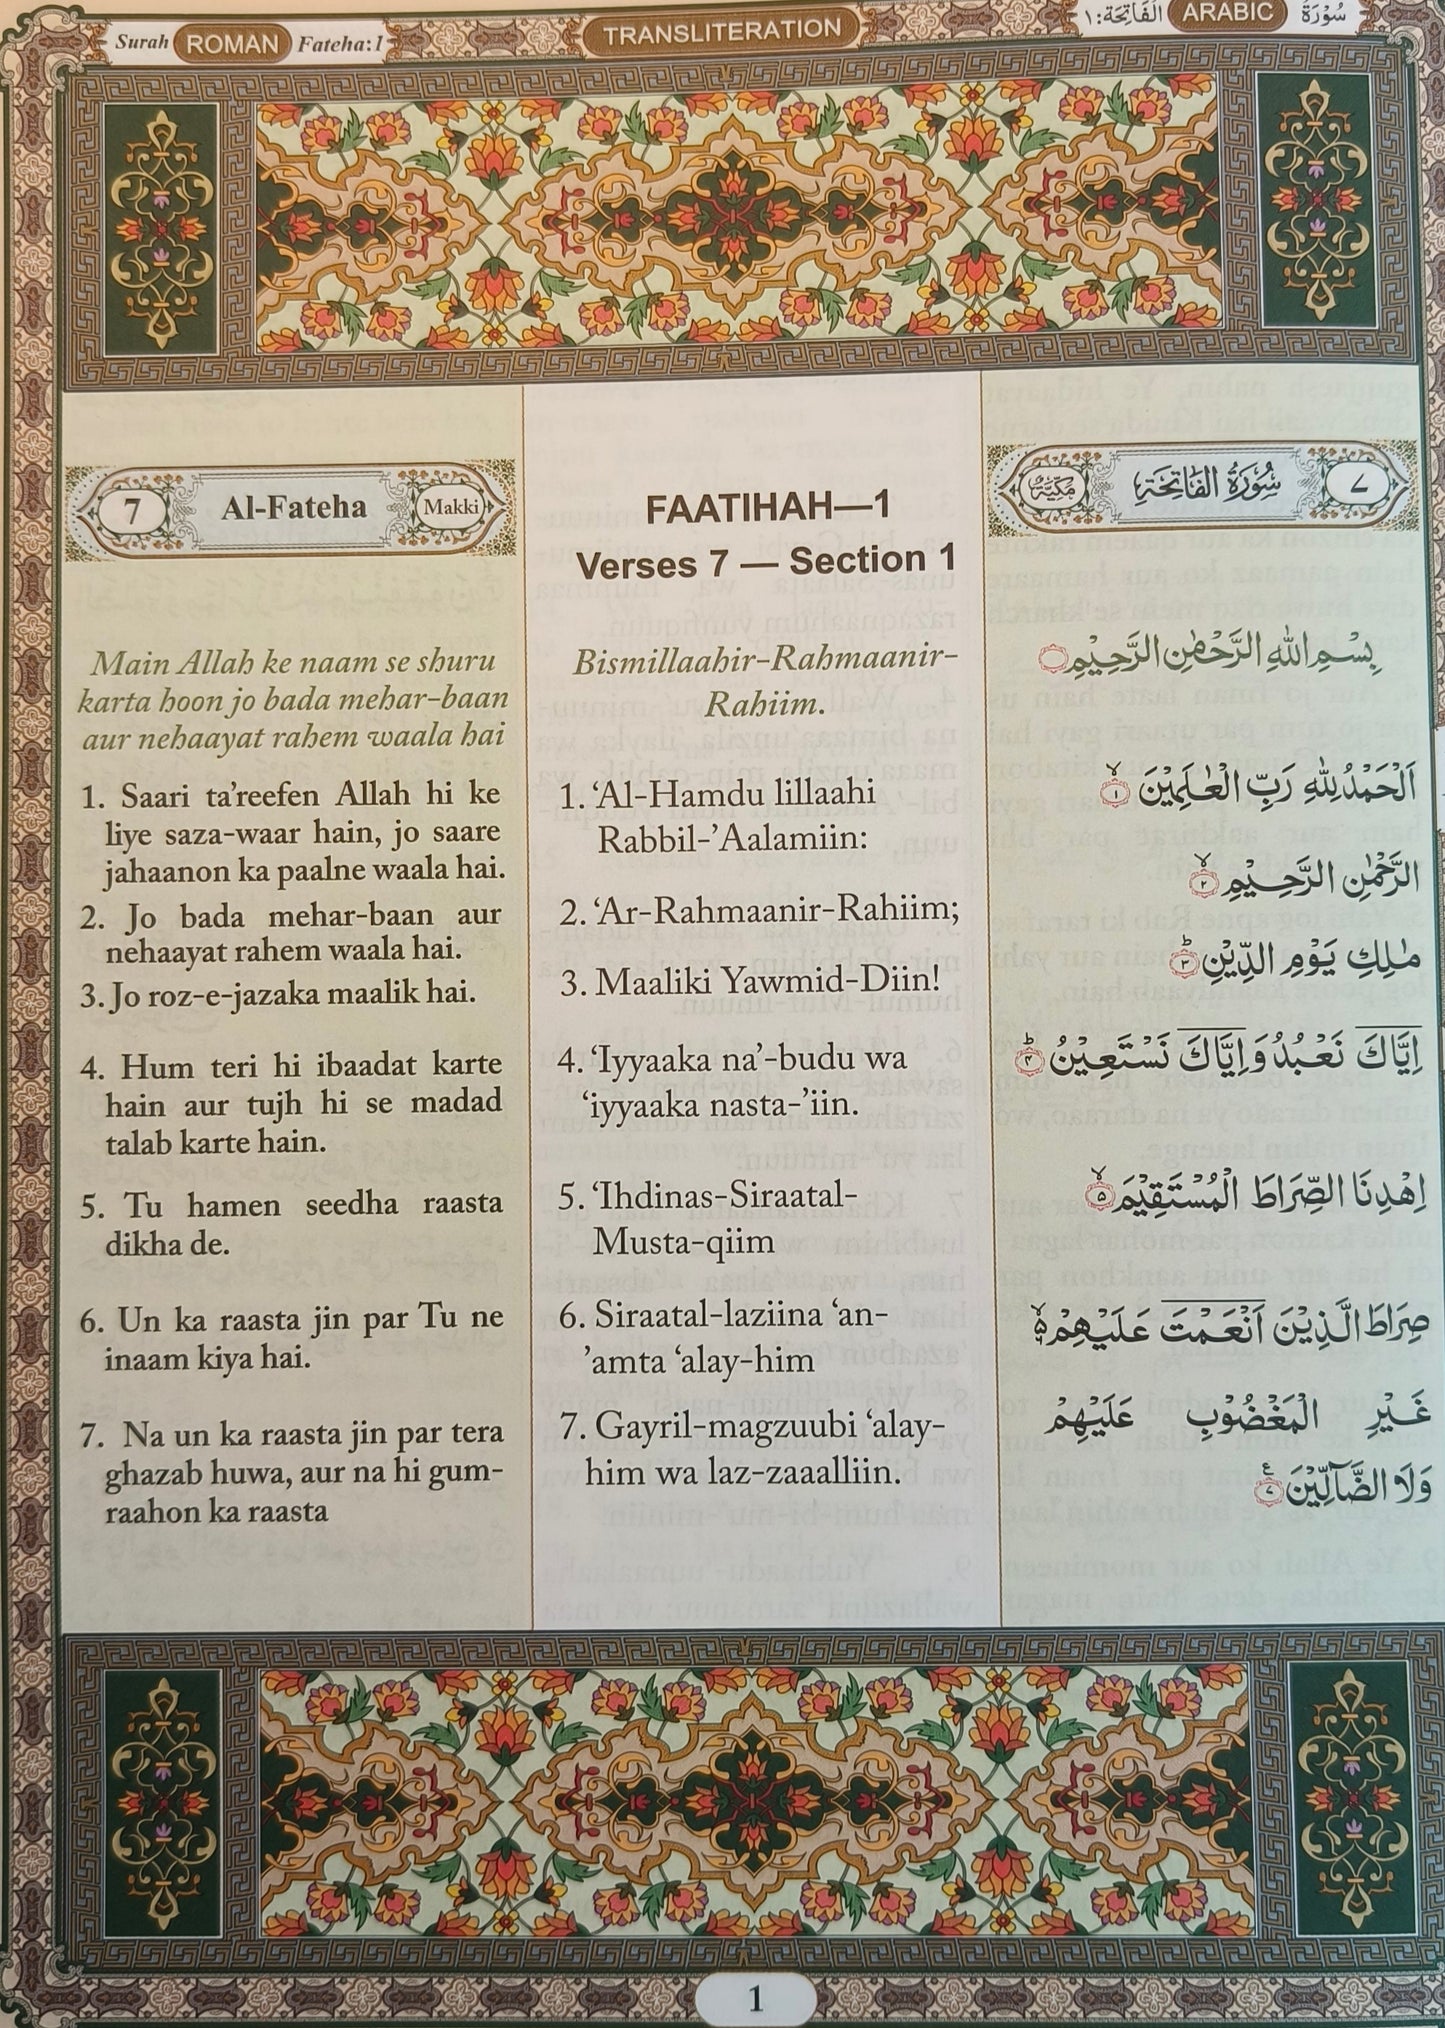 Surah ROMAN Fateha:1
TRANSLITERATION
سُوْرَةُ ARABIC الْفَاتِحَة:١
7 Al-Fateha Makki
Main Allah ke naam se shuru
karta hoon jo bada mehar-baan
aur nehaayat rahem waala hai
1. Saari ta'reefen Allah hi ke
liye saza-waar hain, jo saare
jahaanon ka paalne waala hai.
2. Jo bada mehar-baan aur
nehaayat rahem waala hai.
3. Jo roz-e-jazaka maalik hai.
4. Hum teri hi ibaadat karte
hain aur tujh hi se madad
talab karte hain.
5. Tu hamen seedha raasta
dikha de.
6. Un ka raasta jin par Tu ne
inaam kiya hai.
7. Na un ka raasta jin par tera
ghazab huwa, aur na hi gum-
raahon ka raasta
FAATIHAH—1
Verses 7 — Section 1
Bismillaahir-Rahmaanir-
Rahiim.
1. ‘Al-Hamdu lillaahi
Rabbil-’Aalamiin:
2. ‘Ar-Rahmaanir-Rahiim;
3. Maaliki Yawmid-Diin!
4. ‘Iyyaaka na’-budu wa
‘iyyaaka nasta-’iin.
5. ‘Ihdinas-Siraatal-
Musta-qiim
6. Siraatal-laziina ‘an-
’amta ‘alay-him
7. Gayril-magzuubi ‘alay-
him wa laz-zaaalliin.
٧ سُوْرَةُ الْفَاتِحَةِ مَكِّيَّةٌ
بِسْمِ اللهِ الرَّحْمٰنِ الرَّحِيْمِ
اَلْحَمْدُ لِلّٰهِ رَبِّ الْعٰلَمِيْنَ ۙ ١
الرَّحْمٰنِ الرَّحِيْمِ ۙ ٢
مٰلِكِ يَوْمِ الدِّيْنِ ؕ ٣
اِيَّاكَ نَعْبُدُ وَاِيَّاكَ نَسْتَعِيْنُ ؕ ٤
اِهْدِنَا الصِّرَاطَ الْمُسْتَقِيْمَ ۙ ٥
صِرَاطَ الَّذِيْنَ اَنْعَمْتَ عَلَيْهِمْ ۙ
غَيْرِ الْمَغْضُوْبِ عَلَيْهِمْ
وَلَا الضَّآلِّيْنَ ٧
1